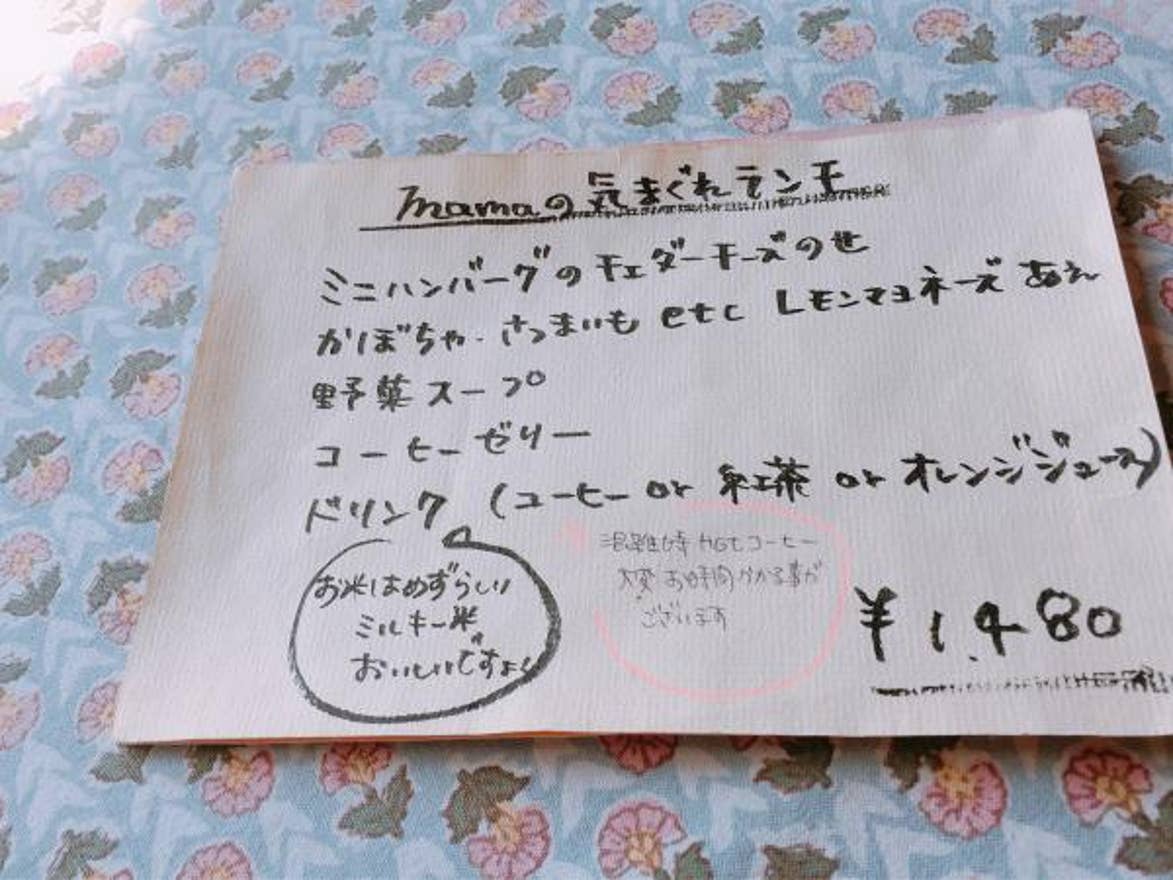 mamaの気まぐれランチ
ミニハンバーグのチェダーチーズのせ
かぼちゃ・さつまいも etc レモンマヨネーズあえ
野菜スープ
コーヒーゼリー
ドリンク (コーヒー or 紅茶 or オレンジジュース)
お米はめずらしい
ミルキー米
おいしいですよ
混雑時 HOtコーヒー
大変お時間かかる事が
ございます
¥1,480